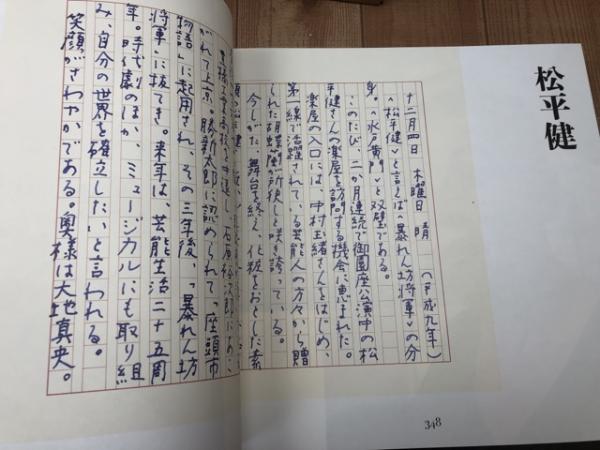 松平健
十二月四日 木曜日 晴 (平成九年)
〈松平健〉と言えば〈暴れん坊将軍〉の分
身。〈水戸黄門〉と双璧である。
このたび、二か月連続で御園座公演中の松
平健さんの楽屋を訪問する機会に恵まれた。
楽屋の入口には、中村玉緒さんをはじめ、
第一線で活躍されている芸能人の方々から贈
られた胡蝶蘭が所狭しと咲き誇っている。
今しがた、舞台を終え、化粧をおとした素
豊橋工業高校を中退し、石原裕次郎にあこ
がれて上京。勝新太郎に認められて「座頭市
物語」に起用され、その三年後、「暴れん坊
将軍」に抜てき。来年は、芸能生活二十五周
年。時代劇のほか、ミュージカルにも取り組
み、自分の世界を確立したいと言われる。
笑顔がさわやかである。奥様は大地真央。
348